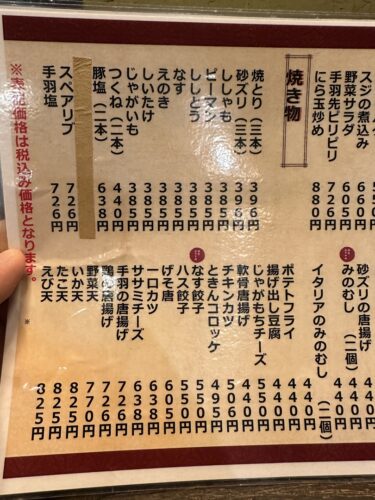 スジの煮込み
野菜サラダ
手羽先ピリピリ 726円
にら玉炒め 880円
焼き物
焼とり(三本) 396円
砂ズリ(三本) 396円
ししゃも 385円
ピーマン 385円
ししとう 385円
なす 385円
えのき 385円
しいたけ 385円
じゃがいも 385円
つくね(二本) 440円
豚塩(二本) 638円
スペアリブ 726円
手羽塩 726円
砂ズリの唐揚げ 440円
みのむし(二個) 440円
イタリアのみのむし(二個) 440円
ポテトフライ 440円
揚げ出し豆腐 440円
じゃがもちチーズ 440円
軟骨唐揚げ 440円
チキンカツ 506円
ときんコロッケ 495円
なす餃子 550円
ハス餃子 550円
げそ唐 605円
一口カツ 638円
ササミチーズ 638円
手羽の唐揚げ 726円
鶏の唐揚げ 770円
野菜天 770円
いか天 825円
たこ天 825円
えび天 825円
※表記価格は税込み価格となります。※